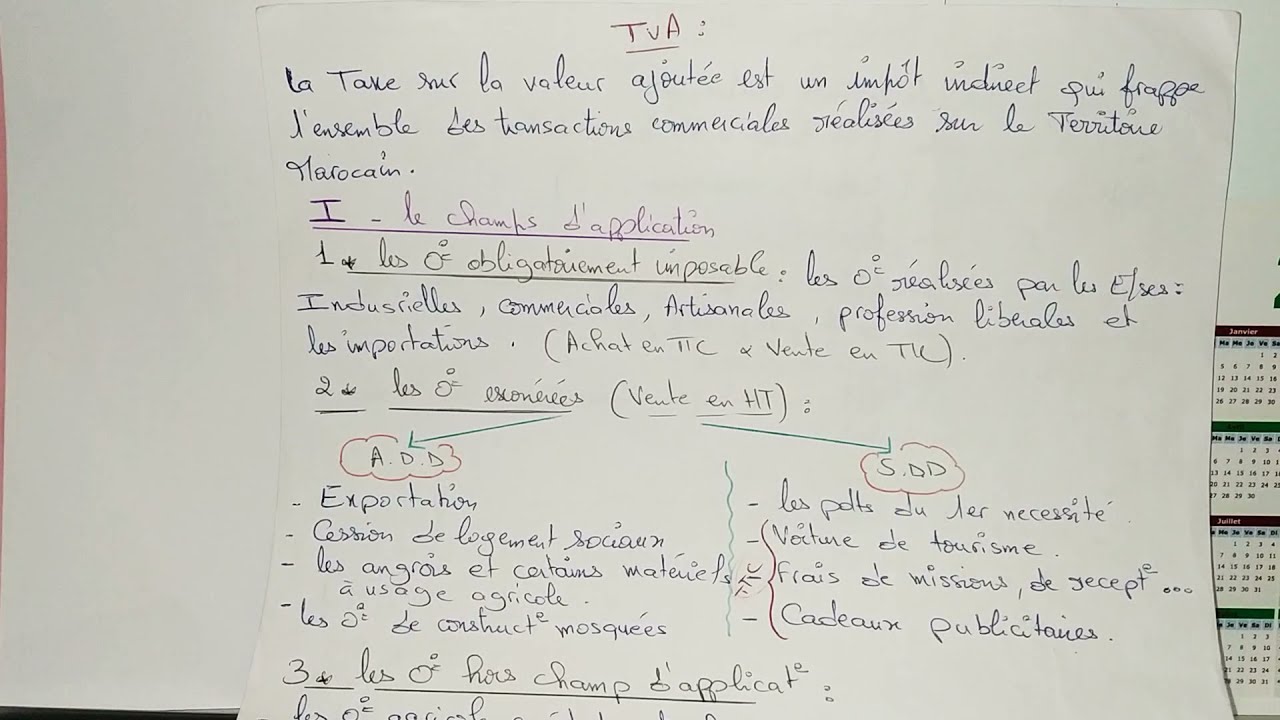 TVA :
la Taxe sur la valeur ajoutée est un impôt indirect qui frappe
l'ensemble des transactions commerciales réalisées sur le Territoire
Marocain.
I - le champs d'application
1* les O° obligatoirement imposable : les O° réalisées par les E/ses :
Indusrielles, commerciales, Artisanales, profession libérales et
les importations. (Achat en TTC & Vente en TTC).
2* les O° exonérées (Vente en HT) :
A.D.D
S.DD
- Exportation
- Cession de logement sociaux
- les angrais et certains matériels
à usage agricole.
- les O° de construct° mosquées
- les pdts du 1er necessité.
- Voiture de tourisme.
- frais de missions, de recept° ...
- Cadeaux publicitaires.
3* les O° hors champ d'applicat° :
les O°
Janvier
Juillet